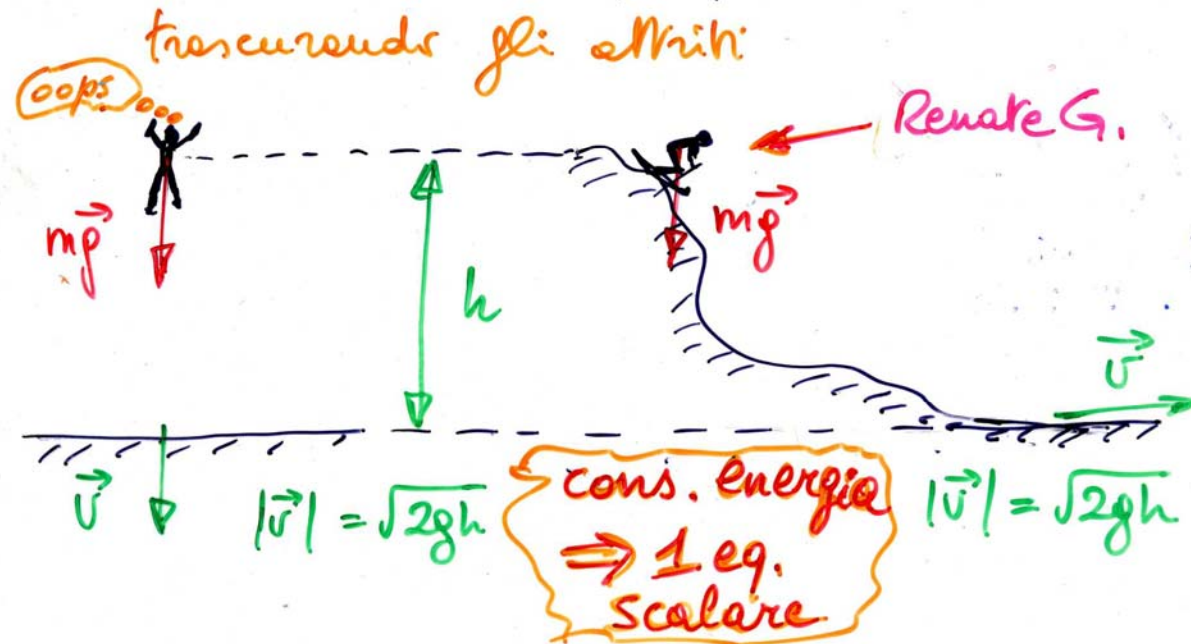 trascurando gli attriti
oops
Renate G.
mg⃗
mg⃗
h
v⃗
v⃗
|v⃗| = √2gh
cons. energia
⇒ 1 eq.
scalare
|v⃗| = √2gh